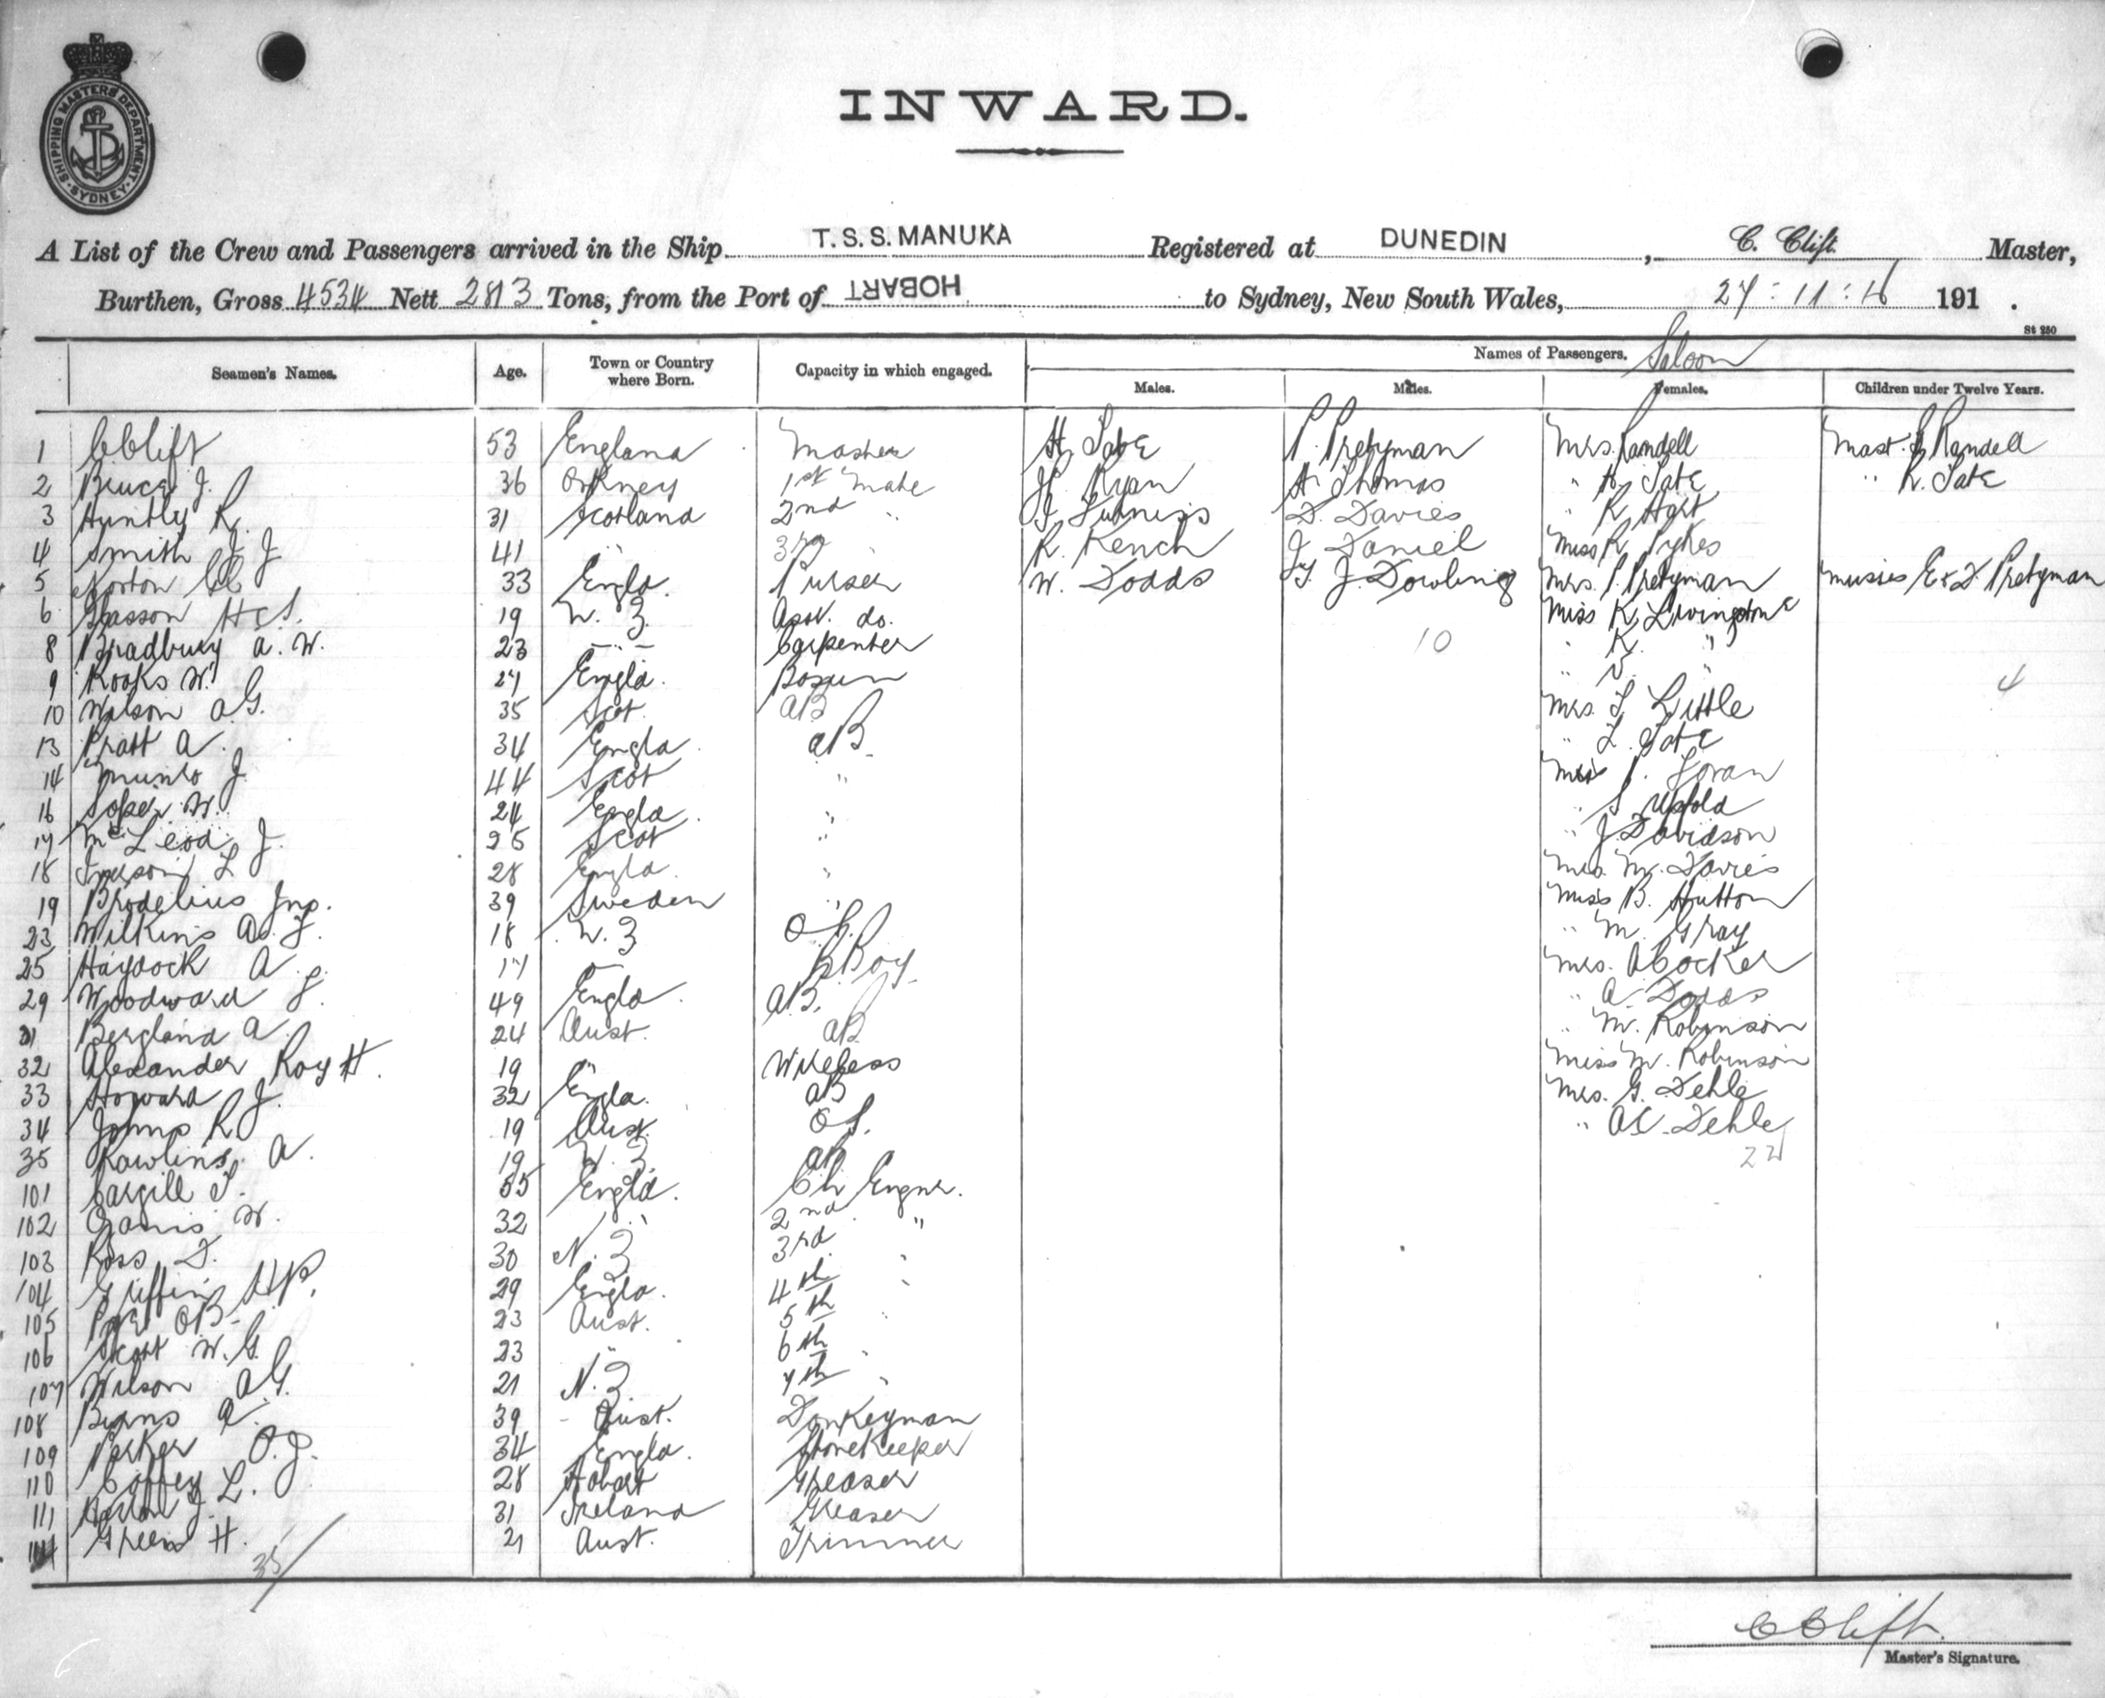 SHIPPING MASTERS DEPARTMENT · SYDNEY ·
INWARD.
A List of the Crew and Passengers arrived in the Ship T.S.S. MANUKA Registered at DUNEDIN, C. Clift Master,
Burthen, Gross 4534 Nett 2813 Tons, from the Port of HOBART to Sydney, New South Wales, 27:11:16 191 .
St 250
Seamen's Names. Age. Town or Country where Born. Capacity in which engaged. Names of Passengers. Saloon
Males. Males. Females. Children under Twelve Years.
1 C Clift 53 England Master H. Tate P. Pretyman Mrs. Randell Mast. J Randell
2 Bruce J. 36 Orkney 1st Mate J. Ryan A. Thomas " H. Tate " R. Tate
3 Huntly R. 31 Scotland 2nd " D. Davies " R Hart
4 Smith J J 41 " 3rd R. Kench J Daniel Miss R Sykes
5 Norton 33 Engla. Purser W. Dodds J. Dowling Mrs. P. Pretyman Misses E & D Pretyman
6 Glasson H C S. 19 N. Z. Asst. do. Miss K Livingstone
8 Bradbury A. W. 23 - " - Carpenter 10 " K. "
9 Rooks W. 27 Engla. Bosun " V. " 4
10 Wilson A.G. 35 Scot. AB Mrs. L Little
13 Pratt A. 34 Engla. AB " L. Tate
14 Munro J. 44 Scot " Miss P. Horan
16 Soper W. 24 Engla. " " S Upfold
17 McLeod J. 25 Scot " " J. Davidson
18 L 28 Engla " Mrs. M. Davies
19 Brodelius Jno. 39 Sweden " Miss B. Hutton
23 Wilkins A. J. 18 N. Z O.S. " M. Gray
25 Haydock A. 17 " B Boy Mrs. A Cocker
29 Woodward J. 49 Engla. AB. " A. Dodds
31 Bergland A 24 Aust. AB " M. Robinson
32 Alexander Roy H. 19 " Wireless Miss M. Robinson
33 Howard J. 32 Engla. AB Mrs. G. Dehle
34 Johns R 19 Aust. OS. " A C. Dehle
35 Rawlins. A. 19 N. Z. AB 22
101 Cargill T. 55 Engla. Ch Engnr.
102 W. 32 " 2nd "
103 Ross D. 30 N. Z 3rd "
104 Griffin H P. 29 Engla. 4th "
105 23 Aust. 5th "
106 Scott W. G. 23 " 6th "
107 Wilson A G. 21 N. Z. 7th "
108 Burns A. 39 - Aust. Donkeyman
109 Parker O. J. 34 Engla. Storekeeper
110 Coffey L. 28 Hobart Greaser
111 J. 31 Ireland Greaser
Green H. 21 Aust. Trimmer
35/
C Clift.
Master's Signature.